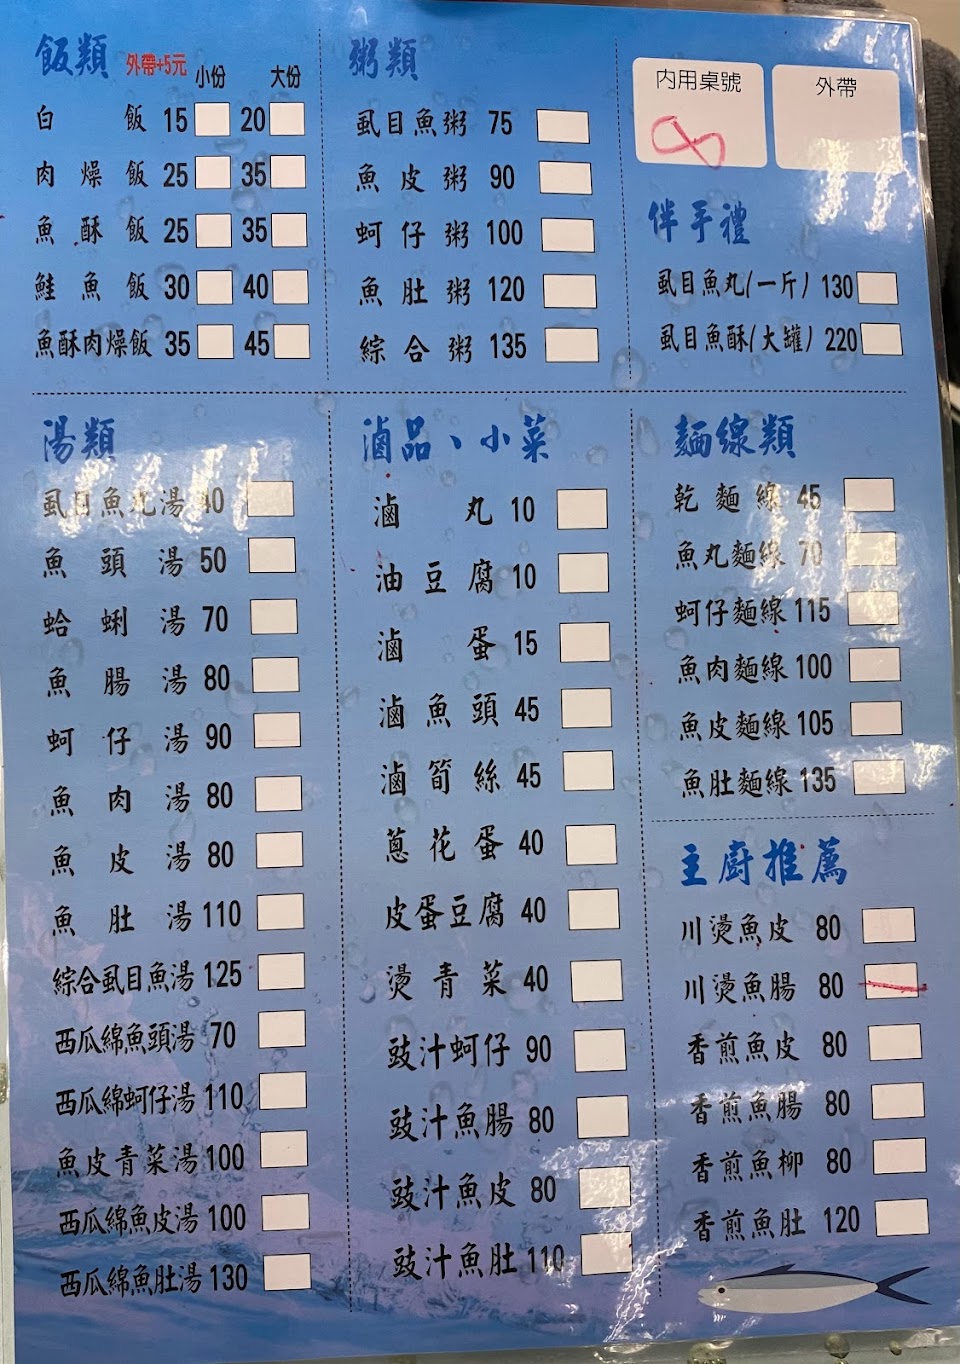 飯類 外帶+5元 小份 大份
白飯 15 20
肉燥飯 25 35
魚酥飯 25 35
鮭魚飯 30 40
魚酥肉燥飯 35 45
粥類
虱目魚粥 75
魚皮粥 90
蚵仔粥 100
魚肚粥 120
綜合粥 135
內用桌號
8
外帶
伴手禮
虱目魚丸(一斤) 130
虱目魚酥(大罐) 220
湯類
虱目魚丸湯 40
魚頭湯 50
蛤蜊湯 70
魚腸湯 80
蚵仔湯 90
魚肉湯 80
魚皮湯 80
魚肚湯 110
綜合虱目魚湯 125
西瓜綿魚頭湯 70
西瓜綿蚵仔湯 110
魚皮青菜湯 100
西瓜綿魚皮湯 100
西瓜綿魚肚湯 130
滷品、小菜
滷丸 10
油豆腐 10
滷蛋 15
滷魚頭 45
滷筍絲 45
蔥花蛋 40
皮蛋豆腐 40
燙青菜 40
豉汁蚵仔 90
豉汁魚腸 80
豉汁魚皮 80
豉汁魚肚 110
麵線類
乾麵線 45
魚丸麵線 70
蚵仔麵線 115
魚肉麵線 100
魚皮麵線 105
魚肚麵線 135
主廚推薦
川燙魚皮 80
川燙魚腸 80
香煎魚皮 80
香煎魚腸 80
香煎魚柳 80
香煎魚肚 120